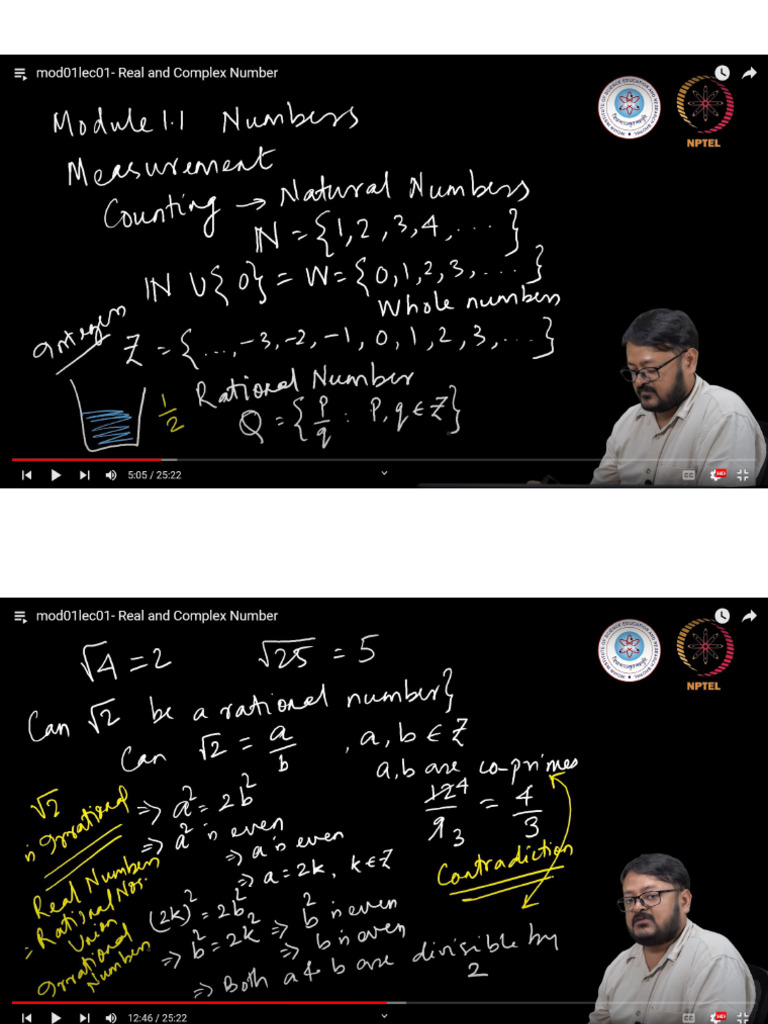 mod01lec01- Real and Complex Number
NPTEL
Module 1.1 Numbers
Measurement
Counting → Natural Numbers
ℕ = {1, 2, 3, 4, ...}
ℕ ∪ {0} = W = {0, 1, 2, 3, ...}
Whole numbers
Integers
Z = {..., -3, -2, -1, 0, 1, 2, 3, ...}
Rational Number
1/2
Q = {p/q : p, q ∈ Z}
5:05 / 25:22
CC
HD
mod01lec01- Real and Complex Number
NPTEL
√4 = 2 √25 = 5
Can √2 be a rational number}
Can √2 = a/b , a, b ∈ Z
a, b are co-primes
12/9 = 4/3
4
3
Contradiction
⇒ a² = 2b²
⇒ a² is even
⇒ a is even
⇒ a = 2k, k ∈ Z
(2k)² = 2b²
⇒ b² = 2k² ⇒ b² is even
⇒ b is even
⇒ Both a & b are divisible by
2
√2
is Irrational
Real Numbers
= Rational Nos.
Union
Irrational
Numbers
12:46 / 25:22
CC
HD